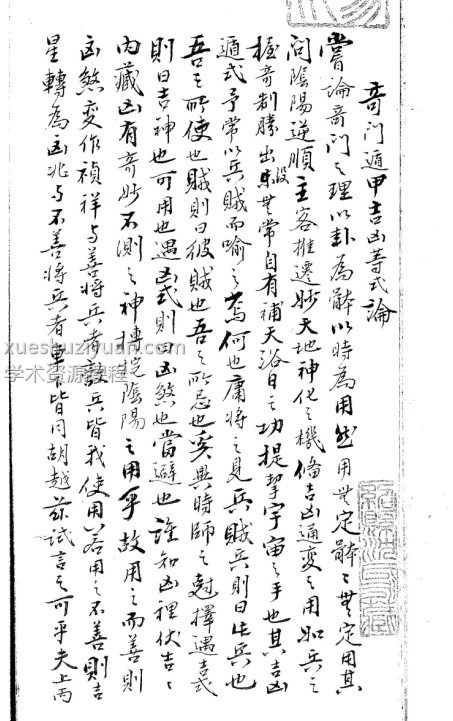 奇门遁甲吉凶等式論
嘗論奇门之理以卦為體以時為用然用無定體體無定用其
间陰陽逆順主客推遷妙天地神化之機偹吉凶通変之用如兵之
握奇制勝出没無常自有補天浴日之功提挈宇宙之手也其吉凶
遁式予常以兵賊而喻之焉何也庸將之見兵賊兵則曰此兵也
吾之所使也賊則曰彼賊也吾之所忌也奚異時師之尅擇遇吉式
則曰吉神也可用也遇凶式則曰凶煞也當避也誰知凶裡伏吉吉
内藏凶有奇妙不測之神摶挖陰陽之用乎故用之而善則
凶煞変作禎祥与善將兵者敵兵皆我使用若用之不善則吉
星轉為凶兆与不善將兵者車下皆同胡越兹試言之可乎夫上丙
xueshuziyuan.com
学术资源课程